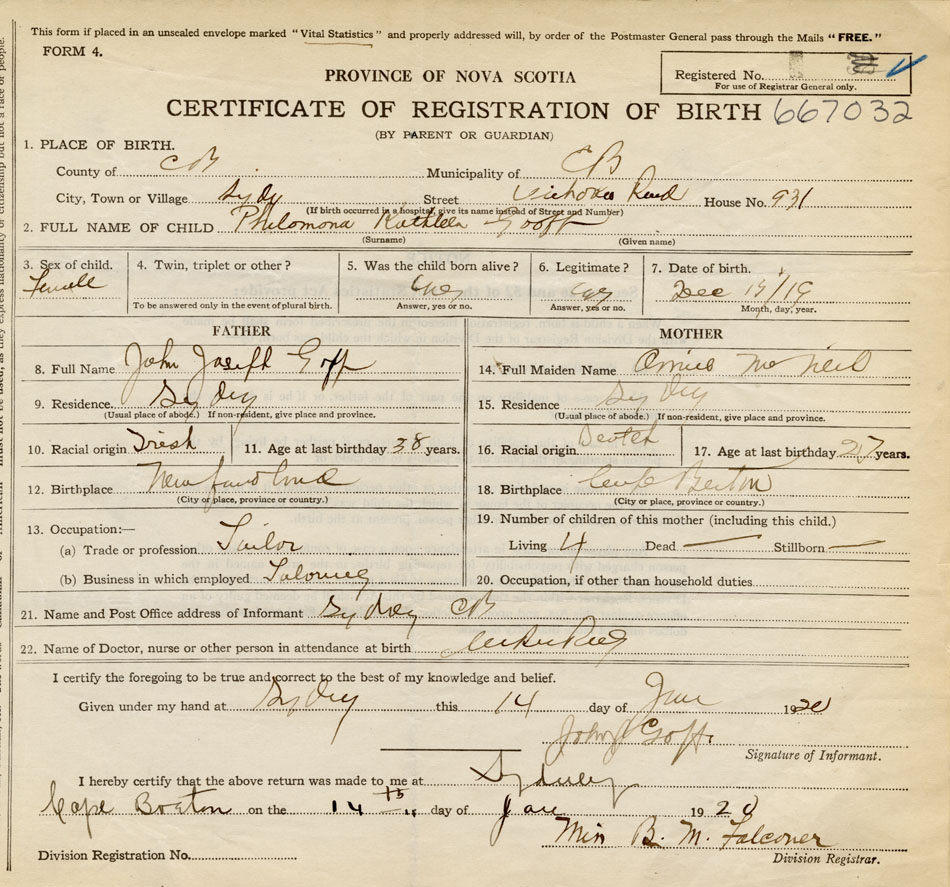 This form if placed in an unsealed envelope marked "Vital Statistics" and properly addressed will, by order of the Postmaster General pass through the Mails "FREE."
FORM 4.
PROVINCE OF NOVA SCOTIA
Registered No.
For use of Registrar General only.
CERTIFICATE OF REGISTRATION OF BIRTH 667032
(BY PARENT OR GUARDIAN)
1. PLACE OF BIRTH.
County of CB Municipality of CB
City, Town or Village Sydy Street Victoria Road House No. 931
(If birth occurred in a hospital, give its name instead of Street and Number)
2. FULL NAME OF CHILD Philomona Kathleen Gooff
(Surname) (Given name)
3. Sex of child. 4. Twin, triplet or other? 5. Was the child born alive? 6. Legitimate? 7. Date of birth.
Female Yes Yes Dec 19/19
To be answered only in the event of plural birth. Answer, yes or no. Answer, yes or no. Month, day, year.
FATHER MOTHER
8. Full Name John Joseph Goff 14. Full Maiden Name Annie McNeil
9. Residence. Sydny 15. Residence Sydny
(Usual place of abode.) If non-resident, give place and province. (Usual place of abode.) If non-resident, give place and province.
10. Racial origin Irish 11. Age at last birthday 38 years. 16. Racial origin Scotch 17. Age at last birthday 27 years.
12. Birthplace Newfoundland 18. Birthplace Cape Breton
(City or place, province or country.) (City or place, province or country.)
13. Occupation:— 19. Number of children of this mother (including this child.)
(a) Trade or profession Tailor Living 4 Dead — Stillborn —
(b) Business in which employed Taloring 20. Occupation, if other than household duties
21. Name and Post Office address of Informant Sydney CB
22. Name of Doctor, nurse or other person in attendance at birth
I certify the foregoing to be true and correct to the best of my knowledge and belief.
Given under my hand at Sydny this 14 day of Jan 1920
John J Goff.
Signature of Informant.
I hereby certify that the above return was made to me at Sydney
Cape Breton on the 14th day of Jan 1920
Miss B. M. Falconer
Division Registration No. Division Registrar.